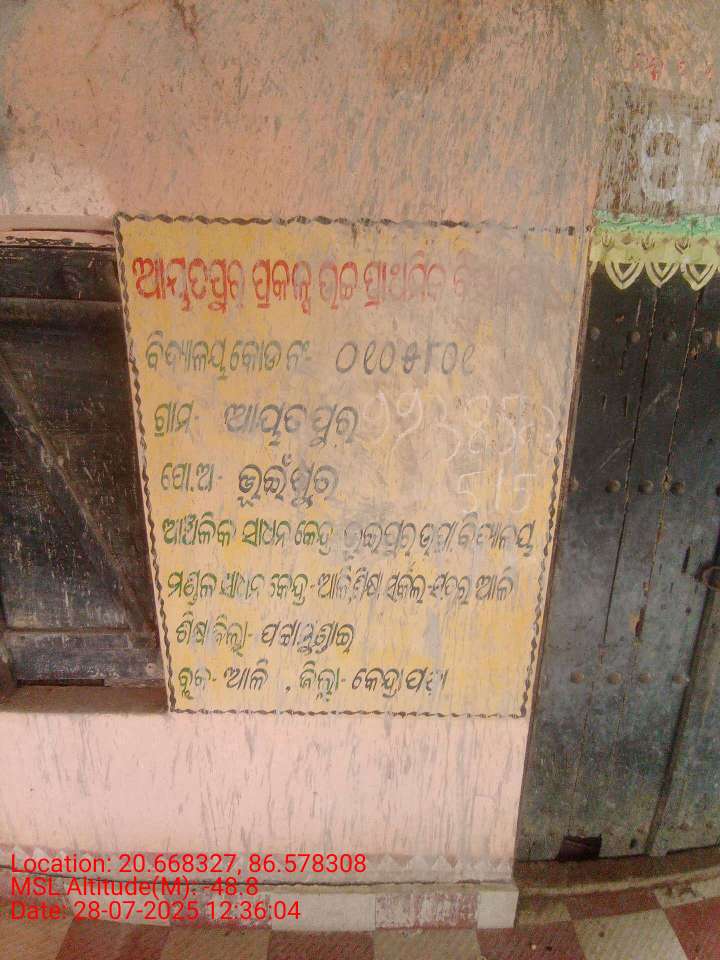 ଆୟୁତପୁର ପ୍ରକଳ୍ପ ଉଚ୍ଚ ପ୍ରାଥମିକ
ବିଦ୍ୟାଳୟ କୋଡ ନଂ- ୦୧୦୫୮୦୧
ଗ୍ରାମ- ଆୟୁତପୁର
ପୋ.ଅ- ଭୂଇଁପୁର
ଆଞ୍ଚଳିକ ସାଧନ କେନ୍ଦ୍ର ଭୂଇଁପୁର ଉପ୍ରା ବିଦ୍ୟାଳୟ
ମଣ୍ଡଳ ସାଧନ କେନ୍ଦ୍ର-ଆଳି ଶିକ୍ଷା ସର୍କଲ-ସଦର ଆଳି
ଶିକ୍ଷା ଜିଲ୍ଲା- ପଟ୍ଟାମୁଣ୍ଡାଇ
ବ୍ଲକ- ଆଳି . ଜିଲ୍ଲା- କେନ୍ଦ୍ରାପଡ଼ା
Location: 20.668327, 86.578308
MSL Altitude(M): -48.8
Date: 28-07-2025 12:36:04